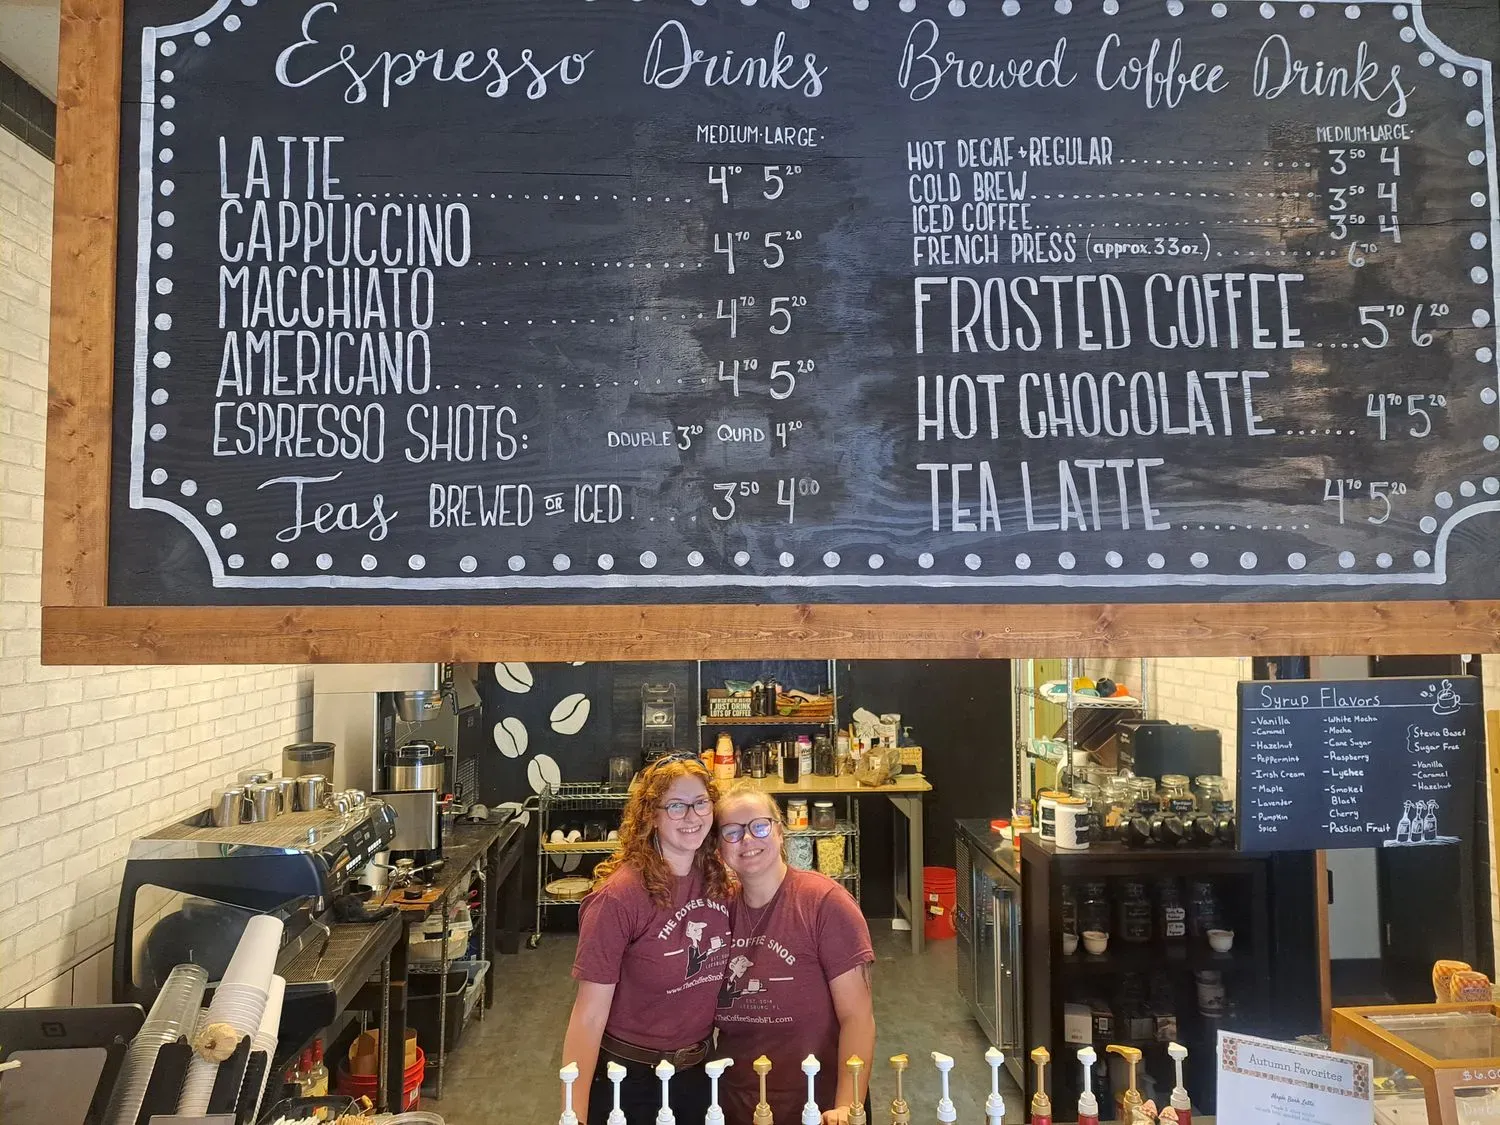 Espresso Drinks
MEDIUM·LARGE·
LATTE 4⁷⁰ 5²⁰
CAPPUCCINO 4⁷⁰ 5²⁰
MACCHIATO 4⁷⁰ 5²⁰
AMERICANO 4⁷⁰ 5²⁰
ESPRESSO SHOTS: DOUBLE 3²⁰ QUAD 4²⁰
Teas BREWED OR ICED 3⁵⁰ 4⁰⁰
Brewed Coffee Drinks
MEDIUM·LARGE·
HOT DECAF + REGULAR 3⁵⁰ 4
COLD BREW 3⁵⁰ 4
ICED COFFEE 3⁵⁰ 4
FRENCH PRESS (approx. 33 oz.) 6⁷⁰
FROSTED COFFEE 5⁷⁰ 6²⁰
HOT CHOCOLATE 4⁷⁰ 5²⁰
TEA LATTE 4⁷⁰ 5²⁰
I JUST DRINK
LOTS OF COFFEE
Syrup Flavors
-Vanilla
-Caramel
-Hazelnut
-Peppermint
-Irish Cream
-Maple
-Lavender
-Pumpkin
Spice
-White Mocha
-Mocha
-Cane Sugar
-Raspberry
-Lychee
-Smoked
Black
Cherry
-Passion Fruit
Stevia Based
Sugar Free
-Vanilla
-Caramel
-Hazelnut
THE COFFEE SNOB
www.TheCoffeeSno
COFFEE SNOB
EST. 2018
LEESBURG FL
TheCoffeeSnobFL.com
Autumn Favorites
Maple Bark Latte
$6.00